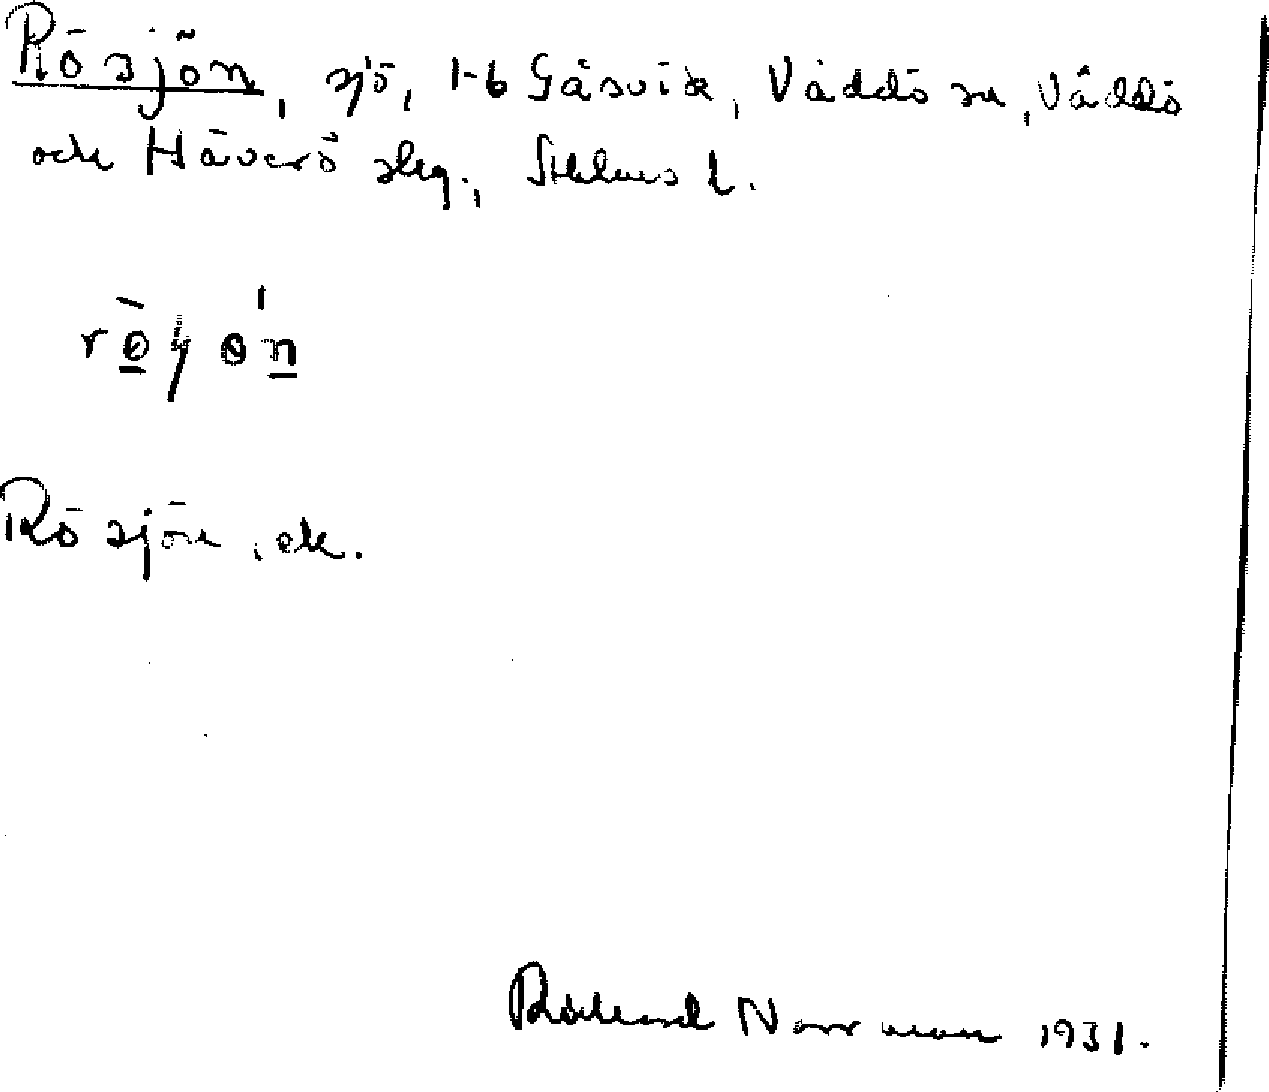 Rösjön, sjö, 1-6 Gåsvik, Väddö sn, Väddö
och Häverö slg., Sthlms l.
Rösjön, ek.
Norrman 1931.